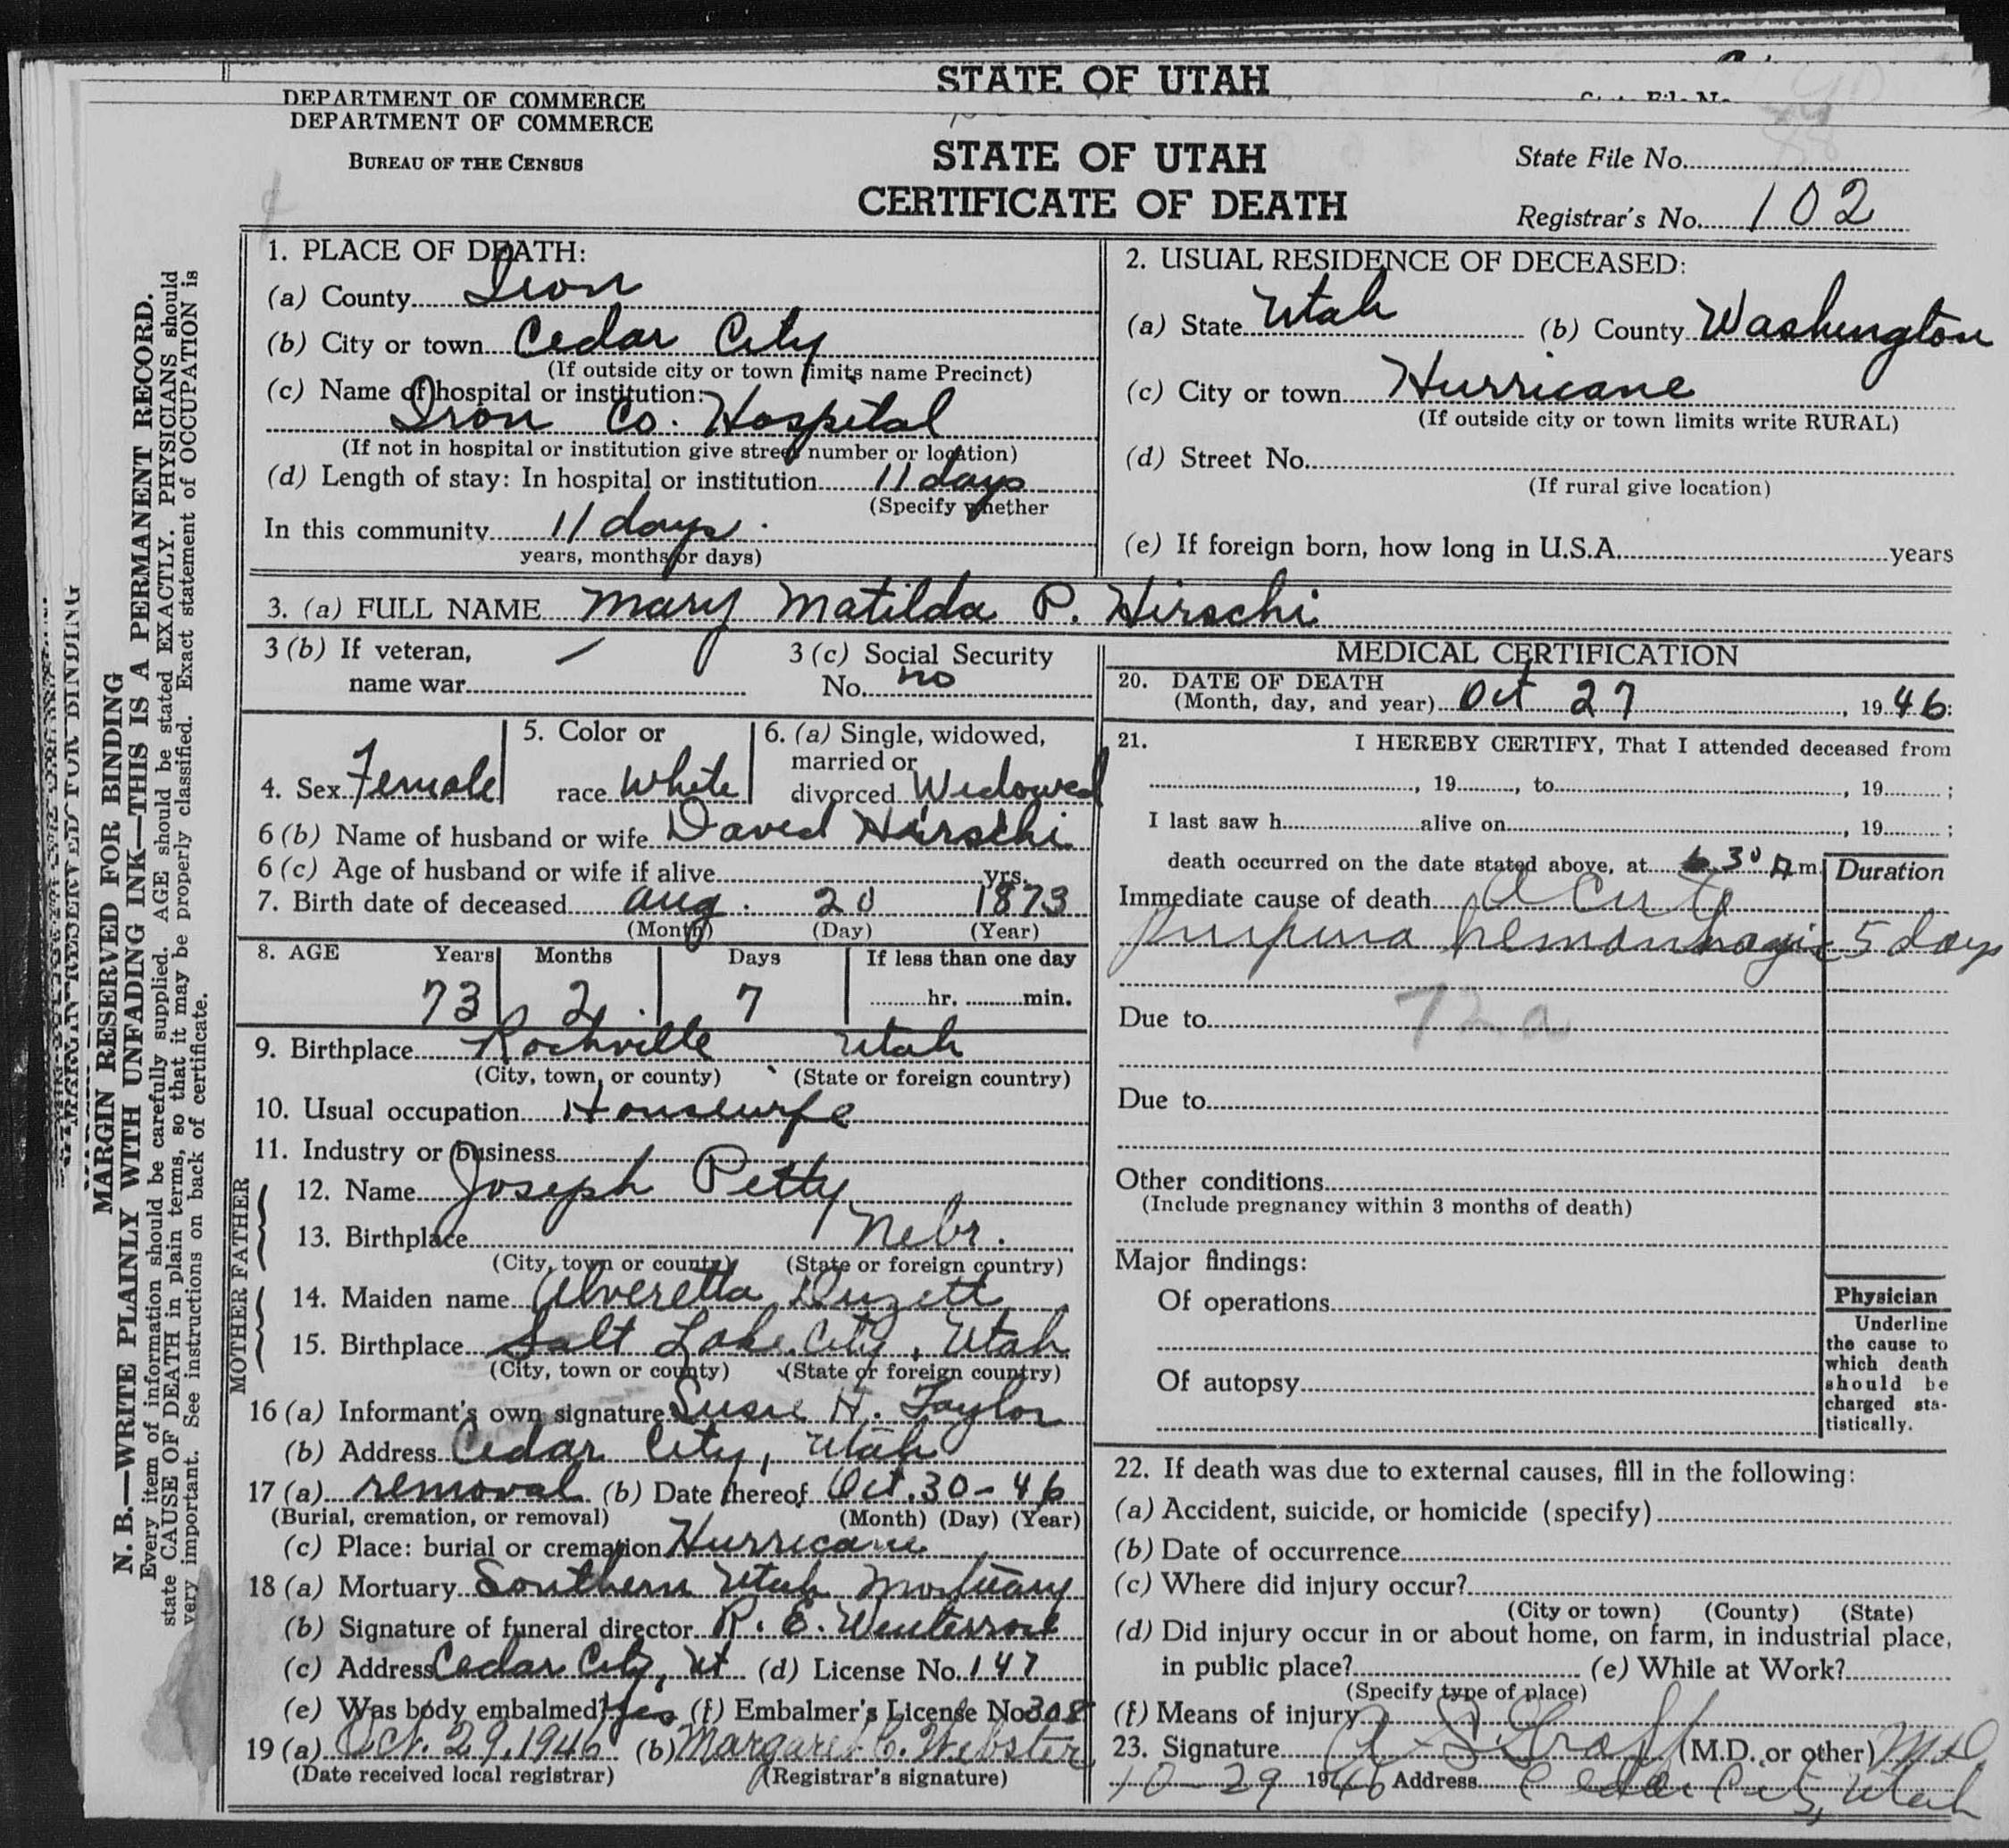 STATE OF UTAH
DEPARTMENT OF COMMERCE
DEPARTMENT OF COMMERCE
BUREAU OF THE CENSUS
STATE OF UTAH
CERTIFICATE OF DEATH
State File No.
Registrar's No. 102
MARGIN RESERVED FOR BINDING
N. B.—WRITE PLAINLY WITH UNFADING INK—THIS IS A PERMANENT RECORD.
Every item of information should be carefully supplied. AGE should be stated EXACTLY. PHYSICIANS should
state CAUSE OF DEATH in plain terms, so that it may be properly classified. Exact statement of OCCUPATION is
very important. See instructions on back of certificate.
1. PLACE OF DEATH:
(a) County Iron
(b) City or town Cedar City
(If outside city or town limits name Precinct)
(c) Name of hospital or institution:
Iron Co. Hospital
(If not in hospital or institution give street number or location)
(d) Length of stay: In hospital or institution 11 days
(Specify whether
In this community 11 days.
years, months or days)
2. USUAL RESIDENCE OF DECEASED:
(a) State Utah (b) County Washington
(c) City or town Hurricane
(If outside city or town limits write RURAL)
(d) Street No.
(If rural give location)
(e) If foreign born, how long in U.S.A. years
3. (a) FULL NAME Mary Matilda P. Hirschi
3 (b) If veteran,
name war
3 (c) Social Security
No. no
4. Sex Female
5. Color or
race White
6. (a) Single, widowed,
married or
divorced Widowed
6 (b) Name of husband or wife David Hirschi
6 (c) Age of husband or wife if alive yrs.
7. Birth date of deceased Aug. 20 1873
(Month) (Day) (Year)
8. AGE Years Months Days If less than one day
73 2 7 hr. min.
9. Birthplace Rockville Utah
(City, town, or county) (State or foreign country)
10. Usual occupation Housewife
11. Industry or business
FATHER
12. Name Joseph Petty
13. Birthplace Nebr.
(City, town or county) (State or foreign country)
MOTHER
14. Maiden name Alveretta Duzett
15. Birthplace Salt Lake City, Utah
(City, town or county) (State or foreign country)
16 (a) Informant's own signature Susie H. Taylor
(b) Address Cedar City, Utah
17 (a) removal (b) Date thereof Oct. 30-46
(Burial, cremation, or removal) (Month) (Day) (Year)
(c) Place: burial or cremation Hurricane
18 (a) Mortuary Southern Utah Mortuary
(b) Signature of funeral director R. E. Winterrose
(c) Address Cedar City, Ut (d) License No. 147
(e) Was body embalmed? Yes (f) Embalmer's License No 308
19 (a) Oct. 29, 1946 (b) Margaret C. Webster
(Date received local registrar) (Registrar's signature)
MEDICAL CERTIFICATION
20. DATE OF DEATH
(Month, day, and year) Oct 27, 1946
21. I HEREBY CERTIFY, That I attended deceased from
, 19 , to , 19 ;
I last saw h alive on , 19 ;
death occurred on the date stated above, at 6 30 A m.
Duration
Immediate cause of death Acute
purpura hemorrhagic 5 days
72a
Due to
Due to
Other conditions
(Include pregnancy within 3 months of death)
Major findings:
Of operations
Of autopsy
Physician
Underline
the cause to
which death
should be
charged sta-
tistically.
22. If death was due to external causes, fill in the following:
(a) Accident, suicide, or homicide (specify)
(b) Date of occurrence
(c) Where did injury occur?
(City or town) (County) (State)
(d) Did injury occur in or about home, on farm, in industrial place,
in public place? (e) While at Work?
(Specify type of place)
(f) Means of injury
23. Signature (M.D. or other) MD
10-29 1946 Address Cedar City, Utah